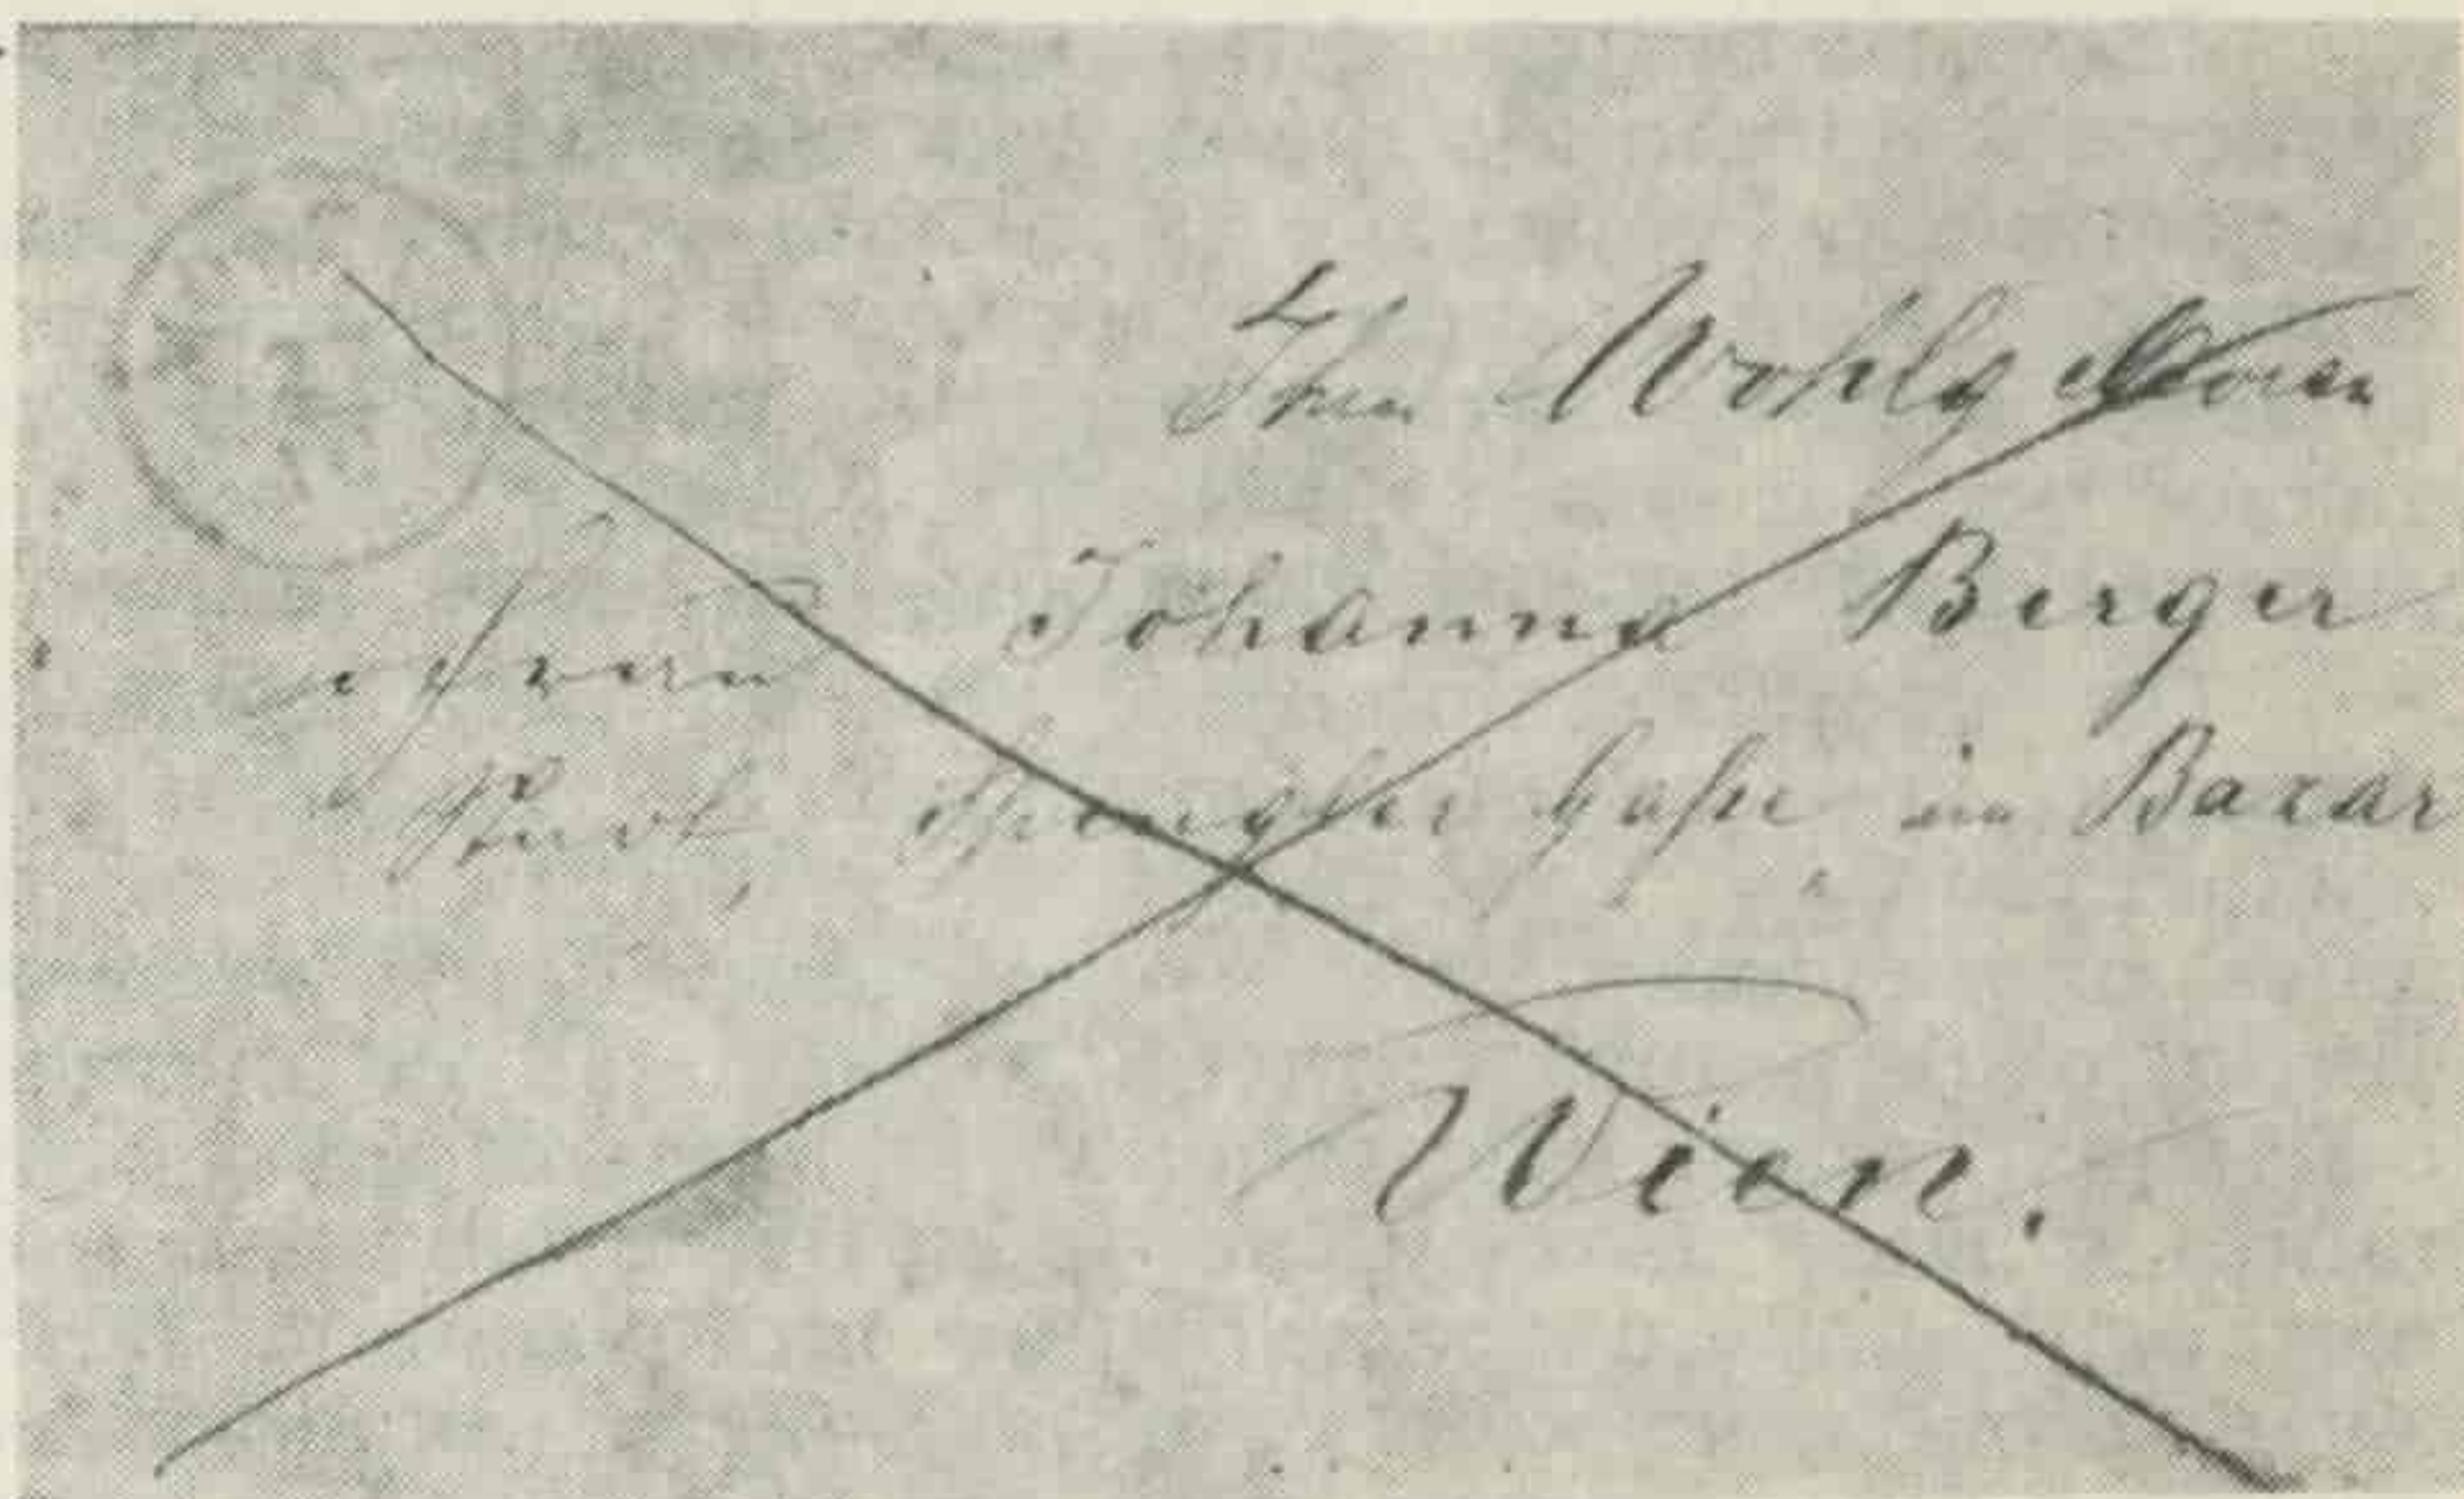 Ihro Wohlgeboren
Frau Johanna Berger
Stadt, Spengler Gaße im Bazar
Wien.